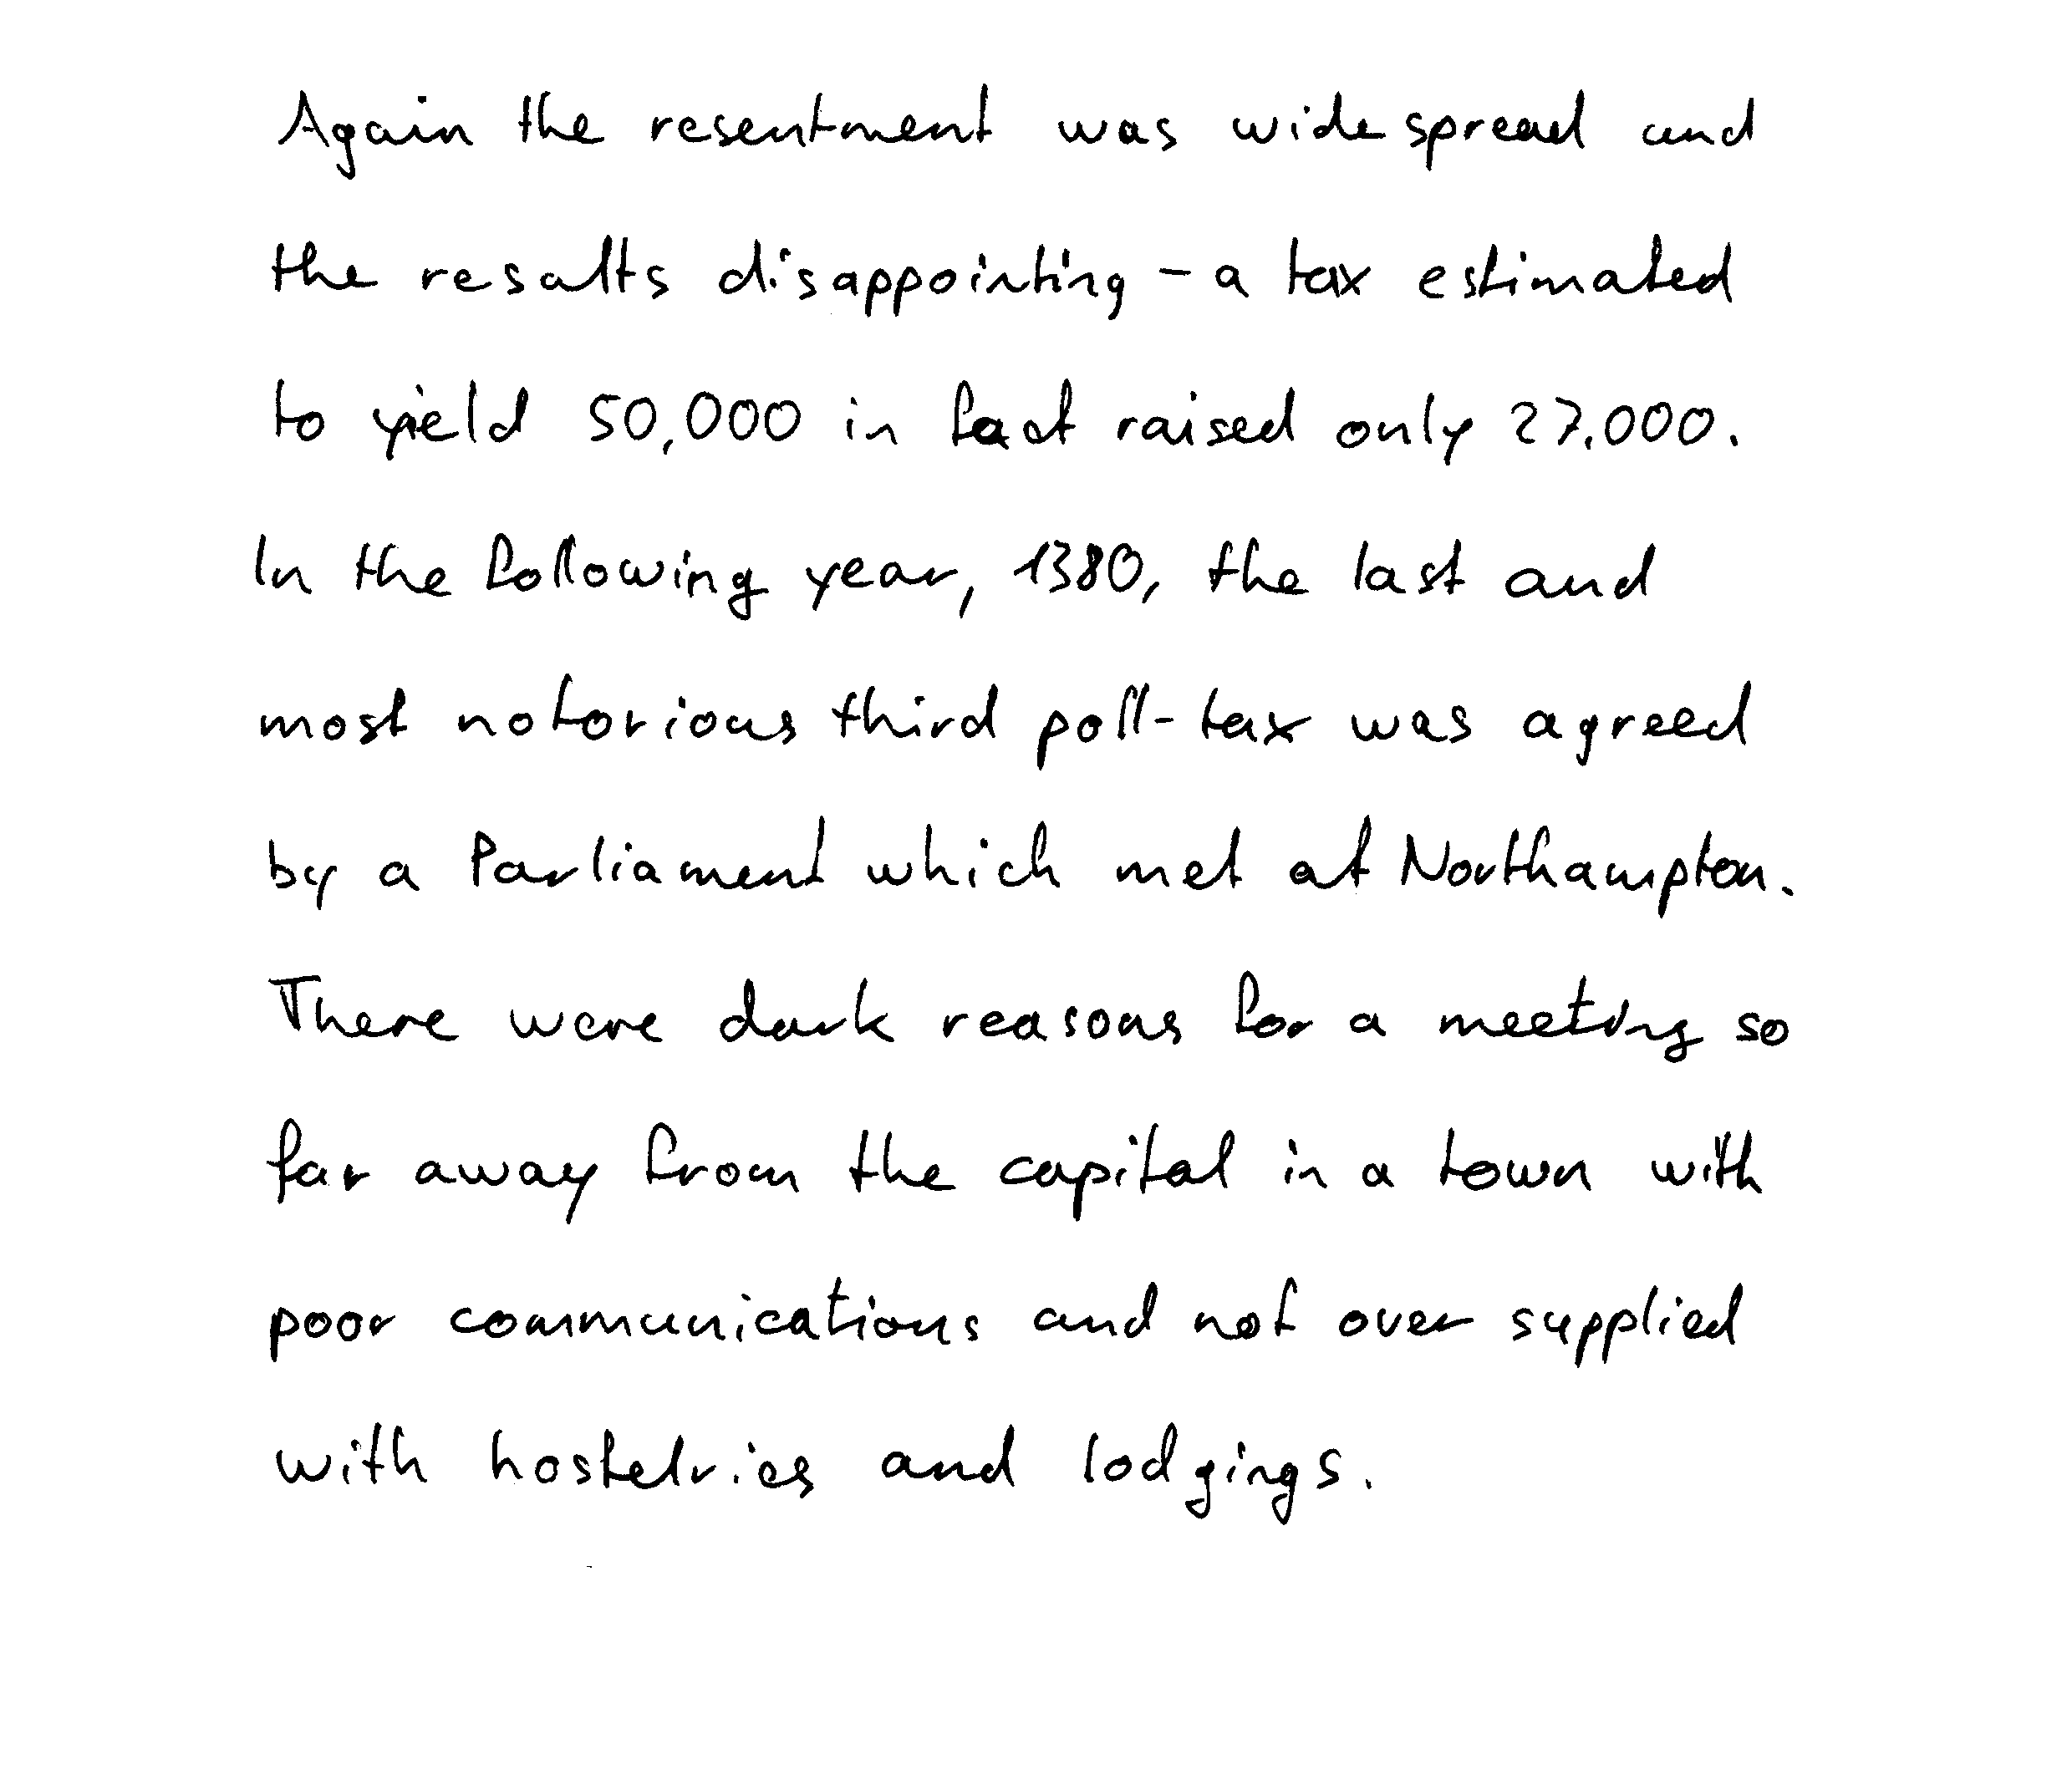 Again the resentment was widespread and
the results disappointing - a tax estimated
to yield 50,000 in fact raised only 27,000.
In the following year, 1380, the last and
most notorious third poll-tax was agreed
by a Parliament which met at Northampton.
There were dark reasons for a meeting so
far away from the capital in a town with
poor communications and not over supplied
with hostelries and lodgings.